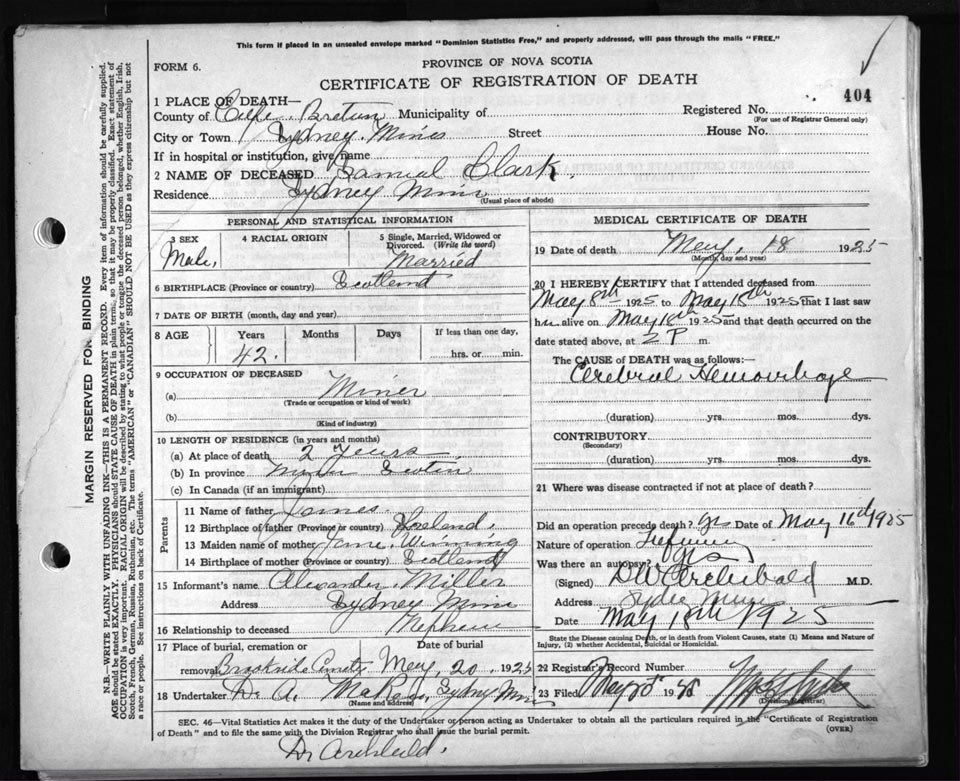 This form if placed in an unsealed envelope marked "Dominion Statistics Free," and properly addressed, will pass through the mails "FREE."
FORM 6.
PROVINCE OF NOVA SCOTIA
CERTIFICATE OF REGISTRATION OF DEATH
404
1 PLACE OF DEATH—
County of Cape Breton Municipality of Registered No.
(For use of Registrar General only)
City or Town Sydney Mines Street House No.
If in hospital or institution, give name
2 NAME OF DECEASED Samual Clark.
Residence Sydney Mines
(Usual place of abode)
PERSONAL AND STATISTICAL INFORMATION
3 SEX
Male,
4 RACIAL ORIGIN
5 Single, Married, Widowed or Divorced. (Write the word)
Married
6 BIRTHPLACE (Province or country) Scotland
7 DATE OF BIRTH (month, day and year)
8 AGE Years Months Days If less than one day,
42. hrs. or min.
9 OCCUPATION OF DECEASED
(a) Miner
(Trade or occupation or kind of work)
(b)
(Kind of industry)
10 LENGTH OF RESIDENCE (in years and months)
(a) At place of death 2 Years
(b) In province Scotia
(c) In Canada (if an immigrant)
Parents
11 Name of father James
12 Birthplace of father (Province or country) Ireland.
13 Maiden name of mother Jane Winning
14 Birthplace of mother (Province or country) Scotland
15 Informant's name Alexander Miller
Address Sydney Mines
16 Relationship to deceased Nephew
17 Place of burial, cremation or removal Date of burial
Brookside Cemet May 20. 1925
18 Undertaker A. Sydney Mines
(Name and address)
MEDICAL CERTIFICATE OF DEATH
19 Date of death May, 18 1925
(Month, day and year)
20 I HEREBY CERTIFY that I attended deceased from
May 8th 1925 to May 18th 1925 that I last saw
him alive on May 18th 1925 and that death occurred on the
date stated above, at 2 P m.
The CAUSE OF DEATH was as follows:—
Cerebral Hemorrhage
(duration) yrs. mos. dys.
CONTRIBUTORY
(Secondary)
(duration) yrs. mos. dys.
21 Where was disease contracted if not at place of death?
Did an operation precede death? yes Date of May 16th 1925
Nature of operation
Was there an autopsy? yes
(Signed) DW Archibald M.D.
Address Sydney Mines
Date May 18th 1925
State the Disease causing Death, or in death from Violent Causes, state (1) Means and Nature of Injury, (2) whether Accidental, Suicidal or Homicidal.
22 Registrar's Record Number
23 Filed 19
(Division Registrar)
SEC. 46—Vital Statistics Act makes it the duty of the Undertaker or person acting as Undertaker to obtain all the particulars required in the "Certificate of Registration
of Death" and to file the same with the Division Registrar who shall issue the burial permit.
(OVER)
Dr Archibald.
MARGIN RESERVED FOR BINDING
N.B.—WRITE PLAINLY WITH UNFADING INK—THIS IS A PERMANENT RECORD. Every item of information should be carefully supplied.
AGE should be stated EXACTLY. PHYSICIANS should STATE CAUSE OF DEATH in plain terms, so that it may be properly classified. Exact statement of
OCCUPATION is very important. RACIAL ORIGIN will be described by stating to what people or tongue the deceased person belonged, whether English, Irish,
Scotch, French, German, Russian, Ruthenian, etc. The terms "AMERICAN" or "CANADIAN" SHOULD NOT BE USED as they express citizenship but not
a race or people. See instructions on back of Certificate.